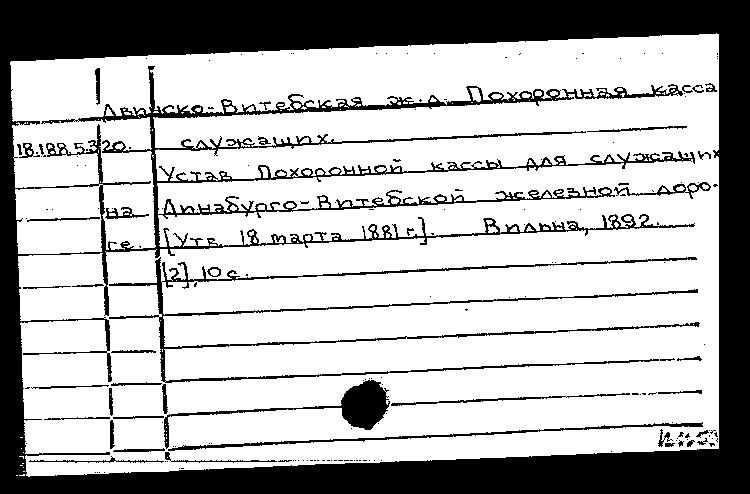 Двинско-Витебская ж.д. Похоронная касса
18.188.5.320. служащих.
Устав Похоронной кассы для служащих
на Динабурго-Витебской железной доро-
ге. [Утв. 18 марта 1881 г.]. Вильна, 1892.
[2], 10 с.